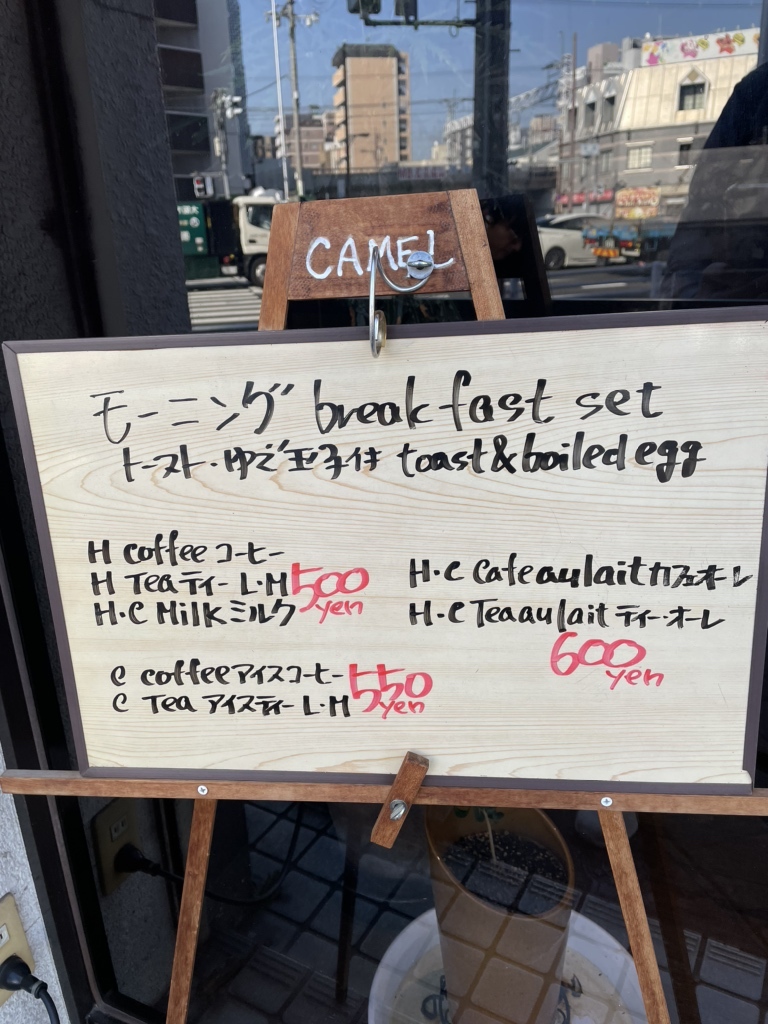 CAMEL
モーニング breakfast set
トースト・ゆで玉子付 toast & boiled egg
H coffee コーヒー
H Tea ティー L・M 500
H・C Milk ミルク yen
C coffee アイスコーヒー 550
C Tea アイスティー L・M yen
H・C Cafe au lait カフェオーレ
H・C Tea au lait ティー・オーレ
600
yen